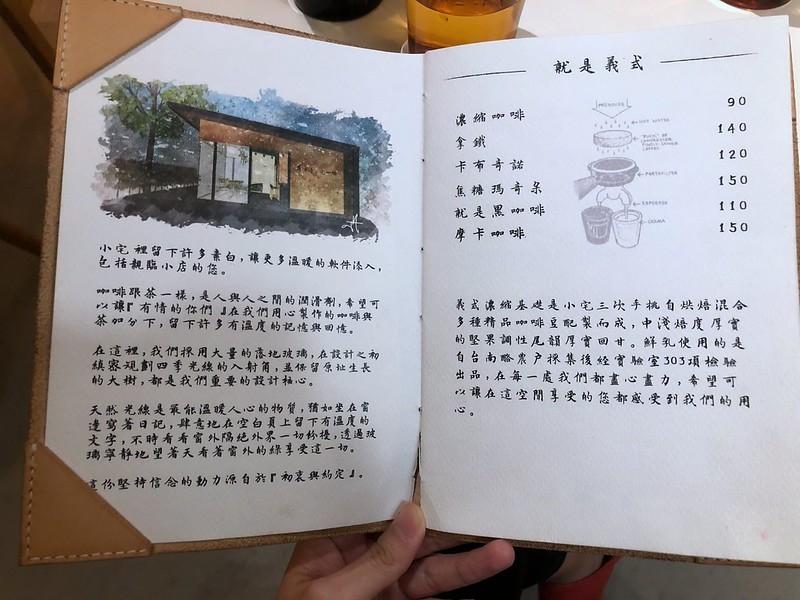 小宅裡留下許多素白,讓更多溫暖的軟件添入,
包括親臨小店的您。
咖啡跟茶一樣,是人與人之間的潤滑劑,希望可
以讓『有情的你們』在我們用心製作的咖啡與
茶加分下,留下許多有溫度的記憶與回憶。
在這裡,我們採用大量的落地玻璃,在設計之初
縝密規劃四季光線的入射角,並保留原址生長
的大樹,都是我們重要的設計核心。
天然光線是最能溫暖人心的物質,猶如坐在窗
邊寫著日記,肆意地在空白頁上留下有溫度的
文字,不時看看窗外隔絕外界一切紛擾,透過玻
璃寧靜地望著天看著窗外的綠享受這一切。
這份堅持信念的動力源自於『初衷與約定』。
就是義式
濃縮咖啡 90
拿鐵 140
卡布奇諾 120
焦糖瑪奇朵 150
就是黑咖啡 110
摩卡咖啡 150
PRESSURE
HOT WATER
"PUCK" OF
COMPRESSED,
FINELY-GROUND
COFFEE
PORTAFILTER
ESPRESSO
CREMA
義式濃縮基礎是小宅三次手挑自烘焙混合
多種精品咖啡豆配製而成,中淺焙度厚實
的堅果調性尾韻厚實回甘。鮮乳使用的是
自台南酪農戶採集後經實驗室303項檢驗
出品,在每一處我們都盡心盡力,希望可
以讓在這空間享受的您都感受到我們的用
心。